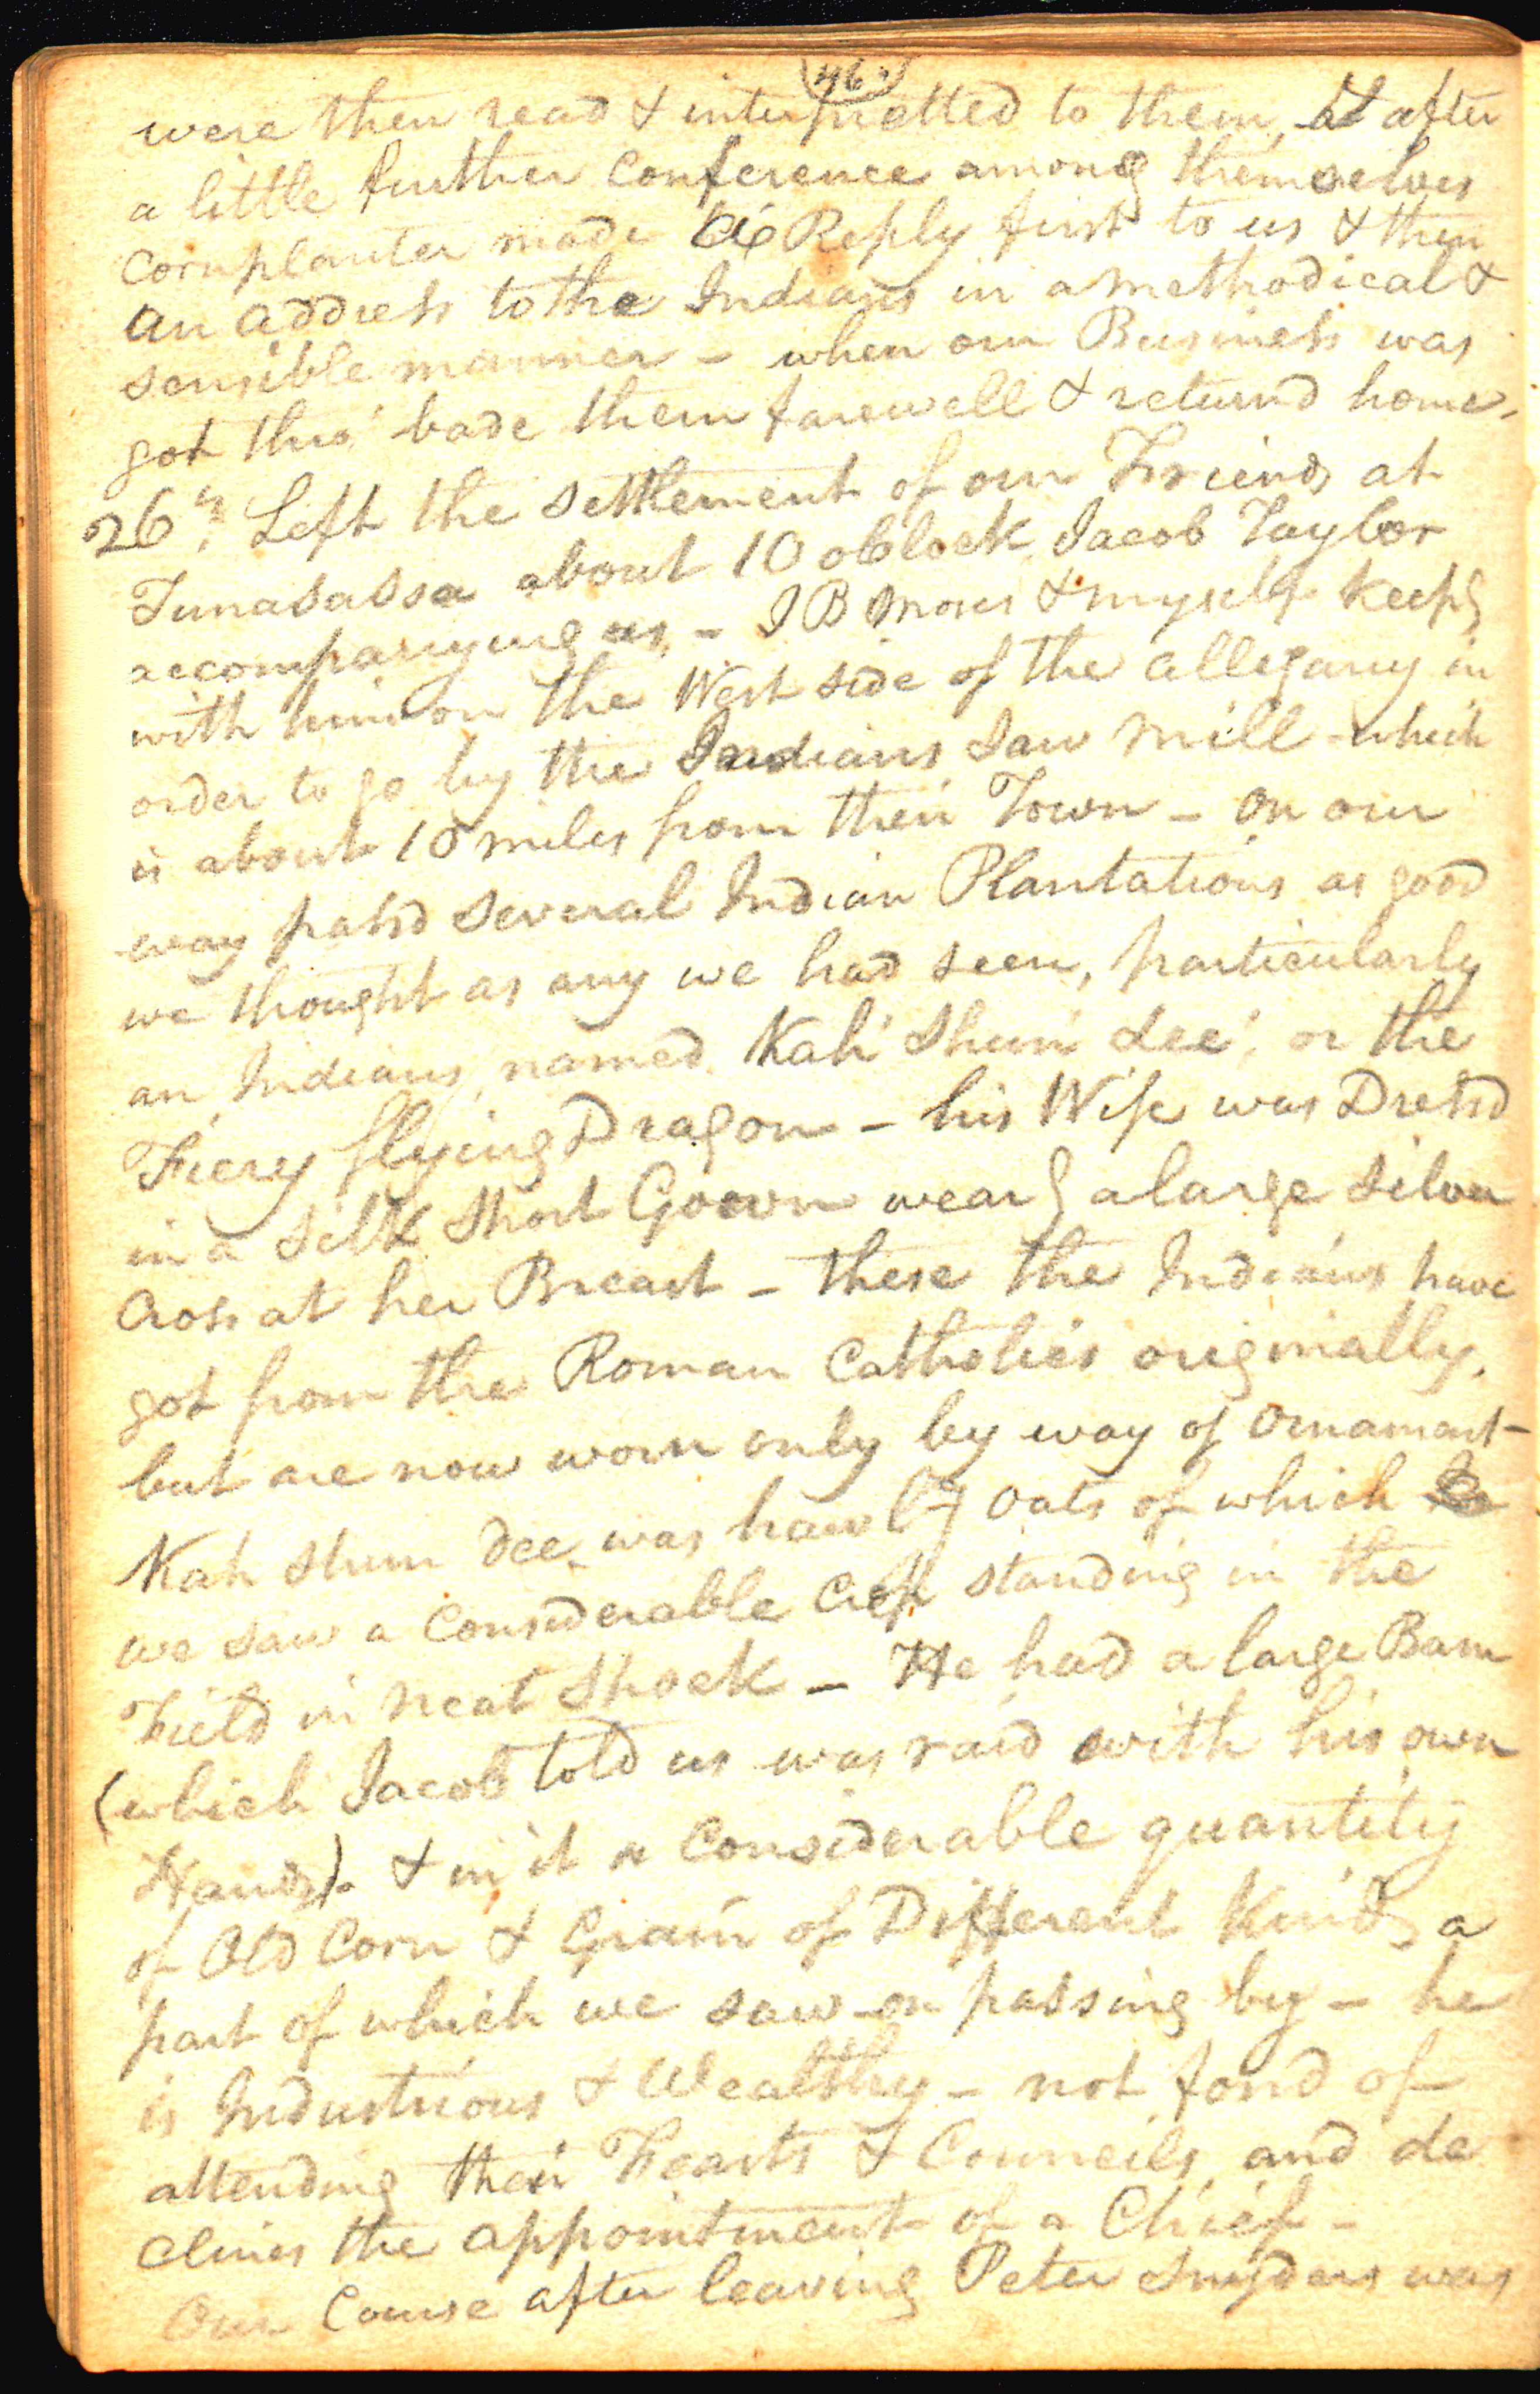 46.
were then read & interpretted to them, & after
a little further Conference among themselves
Cornplanter made his Reply first to us & then
an address to the Indians in a methodical &
sensible manner - when our Business was
got thro' bade them farewell & return'd home.
26th. Left the settlement of our Friends at
Tunasassa about 10 oClock Jacob Taylor
accompanying us, - I B Moses & myself keepg
with him on the West side of the Allegany in
order to go by the Indians Saw Mill - which
is about 10 miles from their Town - On our
way pass'd several Indian Plantations as good
we thought as any we had seen, particularly
an Indians, named Kah' Shun' dee', or the
Fiery flying Dragon - his Wife was Dress'd
in a Silk Short Gown wearg a large Silver
Cross at her Breast - these the Indians have
got from the Roman Catholics originally,
but are now worn only by way of Ornament -
Kah shun dee was hawlg Oats of which
we saw a Considerable Crop standing in the
Field in neat Shock - He had a large Barn
(which Jacob told us was rais'd with his own
Hands) - & in it a Considerable quantity
of Old Corn & Grain of Different Kinds a
part of which we saw on passing by - he
is Industrious & Wealthy - not fond of
attending their Feasts & Councils, and de
clines the appointment of a Chief -
Our Course after leaving Peter Snyders was